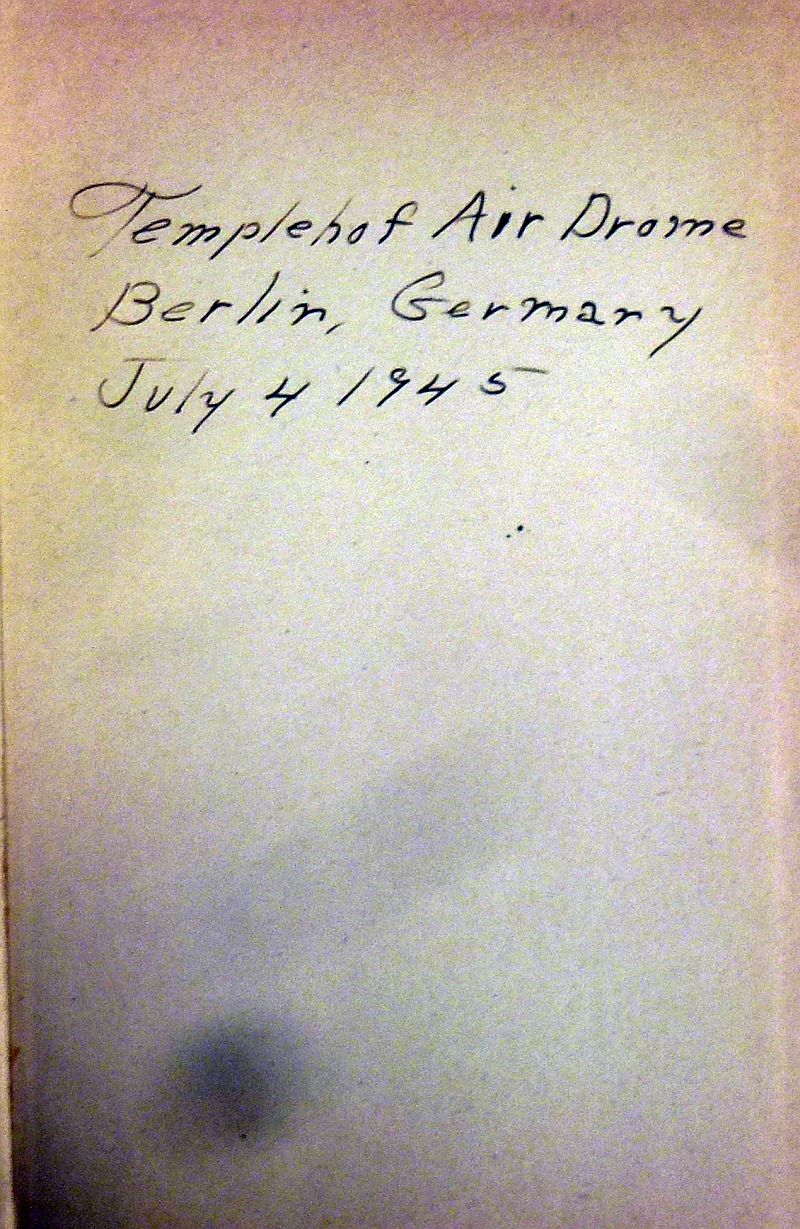 Templehof Air Drome
Berlin, Germany
July 4 1945